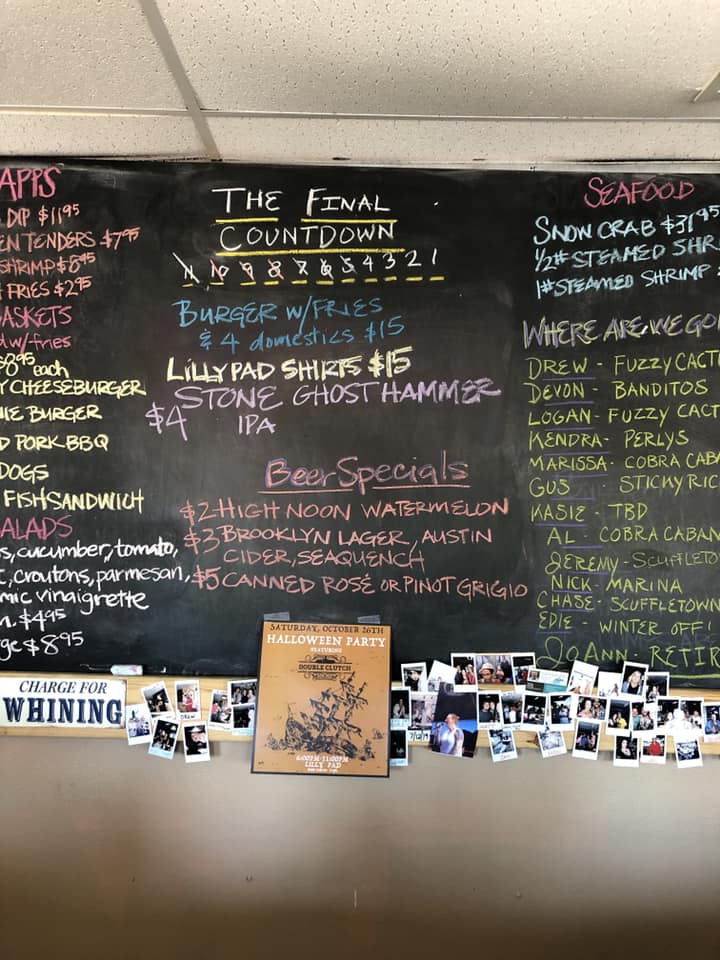 APPS
DIP $11.95
EN TENDERS $7.95
SHRIMP $8.95
FRIES $2.95
ASKETS
w/fries
$8.95 each
Y CHEESEBURGER
IE BURGER
D PORK BBQ
DOGS
FISH SANDWICH
ALADS
s, cucumber, tomato,
c, croutons, parmesan,
mic vinaigrette
m. $4.95
ge $8.95
THE FINAL
COUNTDOWN
11 10 9 8 7 6 5 4 3 2 1
BURGER W/FRIES
& 4 domestics $15
LILLYPAD SHIRTS $15
STONE GHOST HAMMER
$4 IPA
Beer Specials
$2 - HIGH NOON WATERMELON
$3 BROOKLYN LAGER, AUSTIN
CIDER, SEAQUENCH
$5 CANNED ROSÉ OR PINOT GRIGIO
SEAFOOD
SNOW CRAB $31.95
1/2# STEAMED SHR
1# STEAMED SHRIMP
WHERE ARE WE GO
DREW - FUZZY CACT
DEVON - BANDITOS
LOGAN - FUZZY CACT
KENDRA - PERLYS
MARISSA - COBRA CABA
GUS - STICKY RIC
KASIE - TBD
AL - COBRA CABAN
JEREMY - SCUFFLETO
NICK - MARINA
CHASE - SCUFFLETOWN
EDIE - WINTER OFF!
JOANN - RETIR
CHARGE FOR
WHINING
SATURDAY, OCTOBER 26TH
HALLOWEEN PARTY
FEATURING
DOUBLE CLUTCH
6:00PM-11:00PM
LILLY PAD
DREW
7/12/19